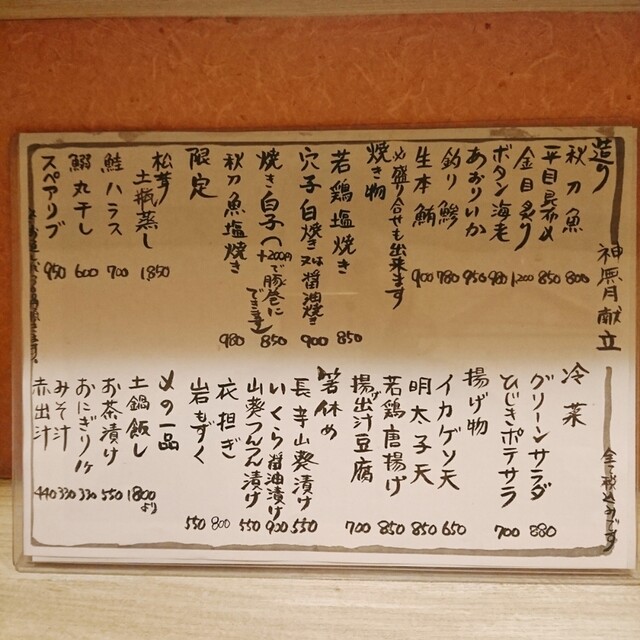 神無月献立
造り
秋刀魚 800
平目昆布〆 850
金目炙り 1,200
ボタン海老 980
あおりいか 950
釣り鯵 780
生本鮪 900
※盛り合せも出来ます
焼き物
若鶏塩焼き 850
穴子白焼き又は醤油焼き 900
焼き白子(+200円で豚巻にできます) 850
秋刀魚塩焼き 980
限定
松茸土瓶蒸し 1,850
鮭ハラス 700
鰯丸干し 600
スペアリブ 950
全て税込みです
冷菜
グリーンサラダ 880
ひじきポテサラ 700
揚げ物
イカゲソ天 650
明太子天 850
若鶏唐揚げ 850
揚げ出汁豆腐 700
箸休め
長芋山葵漬け 550
いくら醤油漬け 900
山葵つんつん漬け 550
衣担ぎ 800
岩もずく 550
〆の一品
土鍋飯し 1800より
お茶漬け 550
おにぎり1ヶ 330
みそ汁 330
赤出汁 440